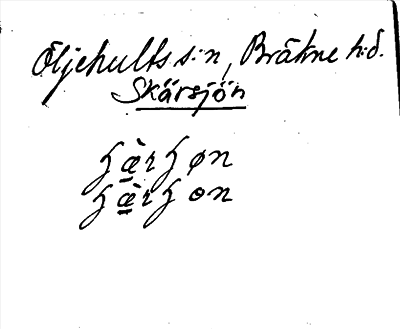 Öljehults s:n, Bräkne h:d.
Skärsjön
ɧæ̀rɧøn
ɧæ̀rɧon